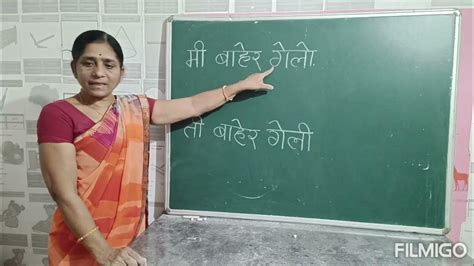 मी बाहेर गेलो.
ती बाहेर गेली
FILMIGO